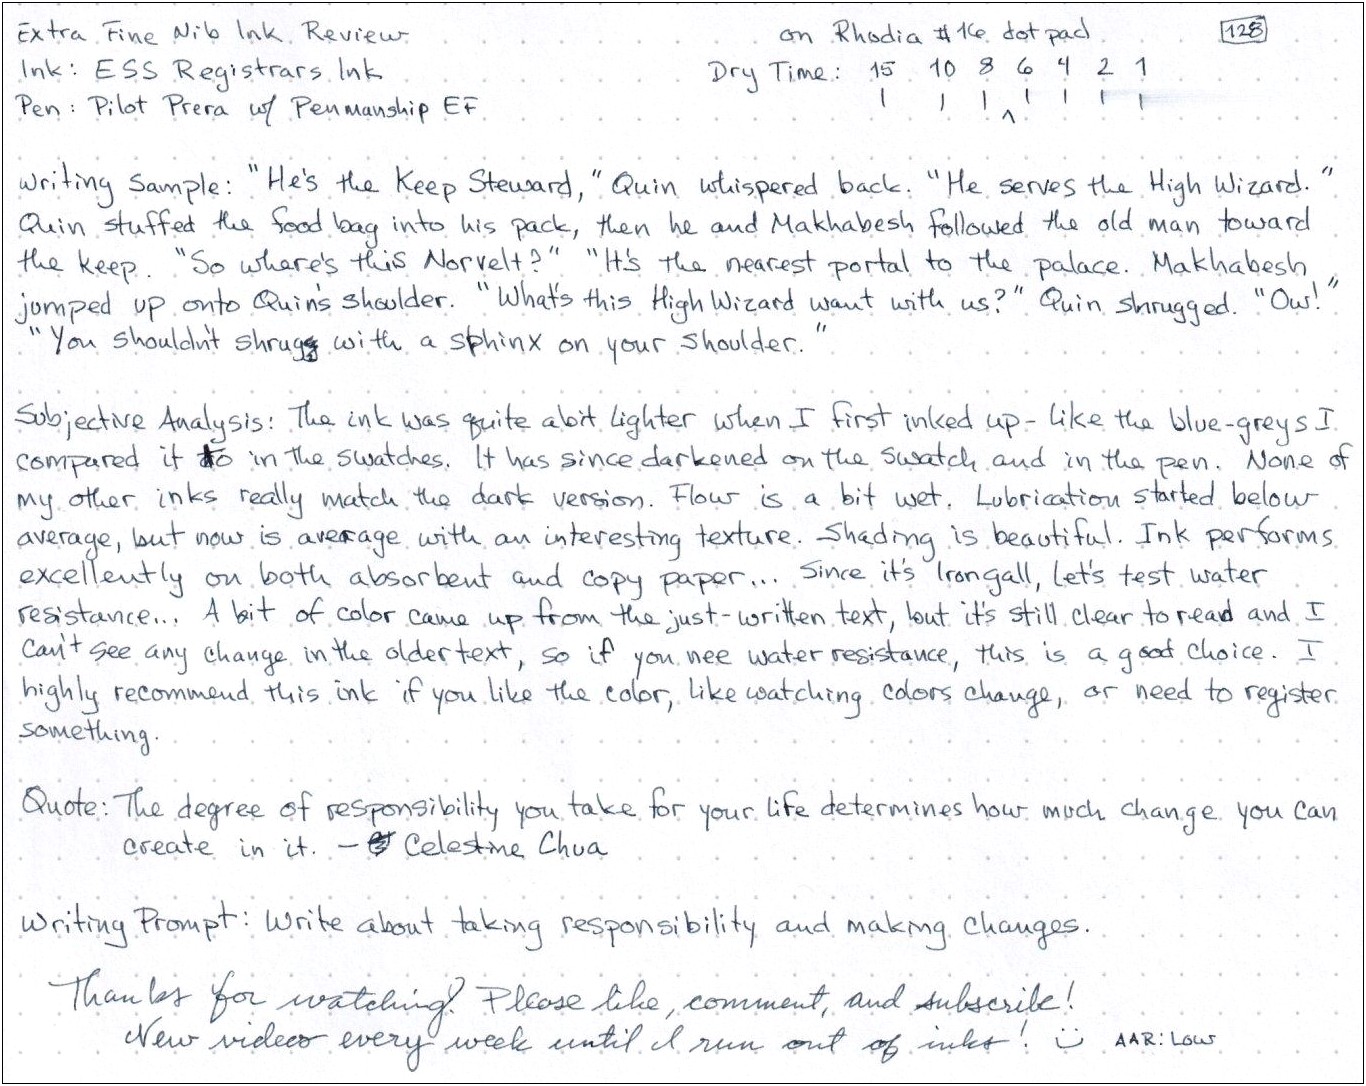 Extra Fine Nib Ink Review on Rhodia #16 dot pad 128
Ink: ESS Registrars Ink Dry Time: 15 10 8 6 4 2 1
Pen: Pilot Prera w/ Penmanship EF
Writing Sample: "He's the Keep Steward," Quin whispered back. "He serves the High Wizard."
Quin stuffed the food bag into his pack, then he and Makhabesh followed the old man toward
the keep. "So where's this Norvelt?" "It's the nearest portal to the palace. Makhabesh
jumped up onto Quin's shoulder. "What's this High Wizard want with us?" Quin shrugged. "Ow!"
"You shouldn't shrug with a sphinx on your shoulder."
Subjective Analysis: The ink was quite a bit lighter when I first inked up - like the blue-greys I
compared it to in the swatches. It has since darkened on the swatch and in the pen. None of
my other inks really match the dark version. Flow is a bit wet. Lubrication started below
average, but now is average with an interesting texture. Shading is beautiful. Ink performs
excellently on both absorbent and copy paper... Since it's Iron gall, let's test water
resistance... A bit of color came up from the just-written text, but it's still clear to read and I
can't see any change in the older text, so if you nee water resistance, this is a good choice. I
highly recommend this ink if you like the color, like watching colors change, or need to register
something.
Quote: The degree of responsibility you take for your life determines how much change you can
create in it. - Celestine Chua
Writing Prompt: Write about taking responsibility and making changes.
Thanks for watching! Please like, comment, and subscribe!
New videos every week until I run out of inks! AAR: Low